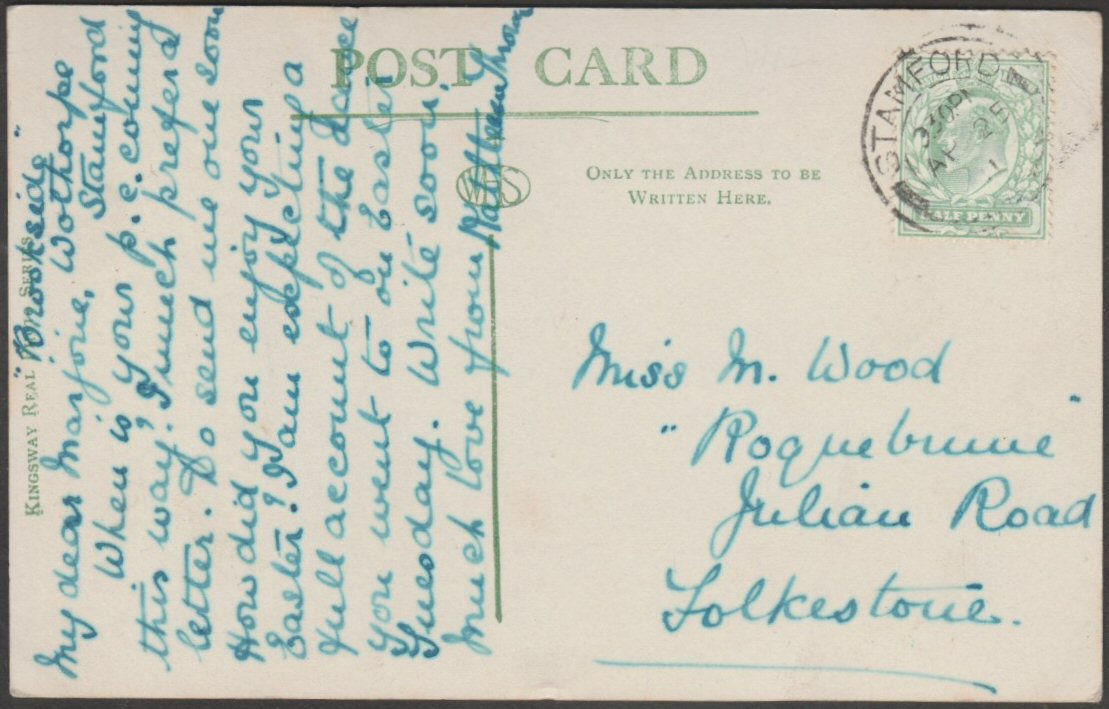 POST CARD
ONLY THE ADDRESS TO BE
WRITTEN HERE.
KINGSWAY REAL PHOTO SERIES
STAMFORD
9 30 PM
AP 5
12
HALF PENNY
"Brookside"
Wothorpe
Stamford
My dear Marjorie,
When is your p.c. coming
this way? I much prefer a
letter. Do send me one soon
How did you enjoy your
Easter? I am expecting a
full account of the dance
you went to on Easter
Tuesday. Write soon.
Much love from
Miss M. Wood
"Roquebrune"
Julian Road
Folkestone.